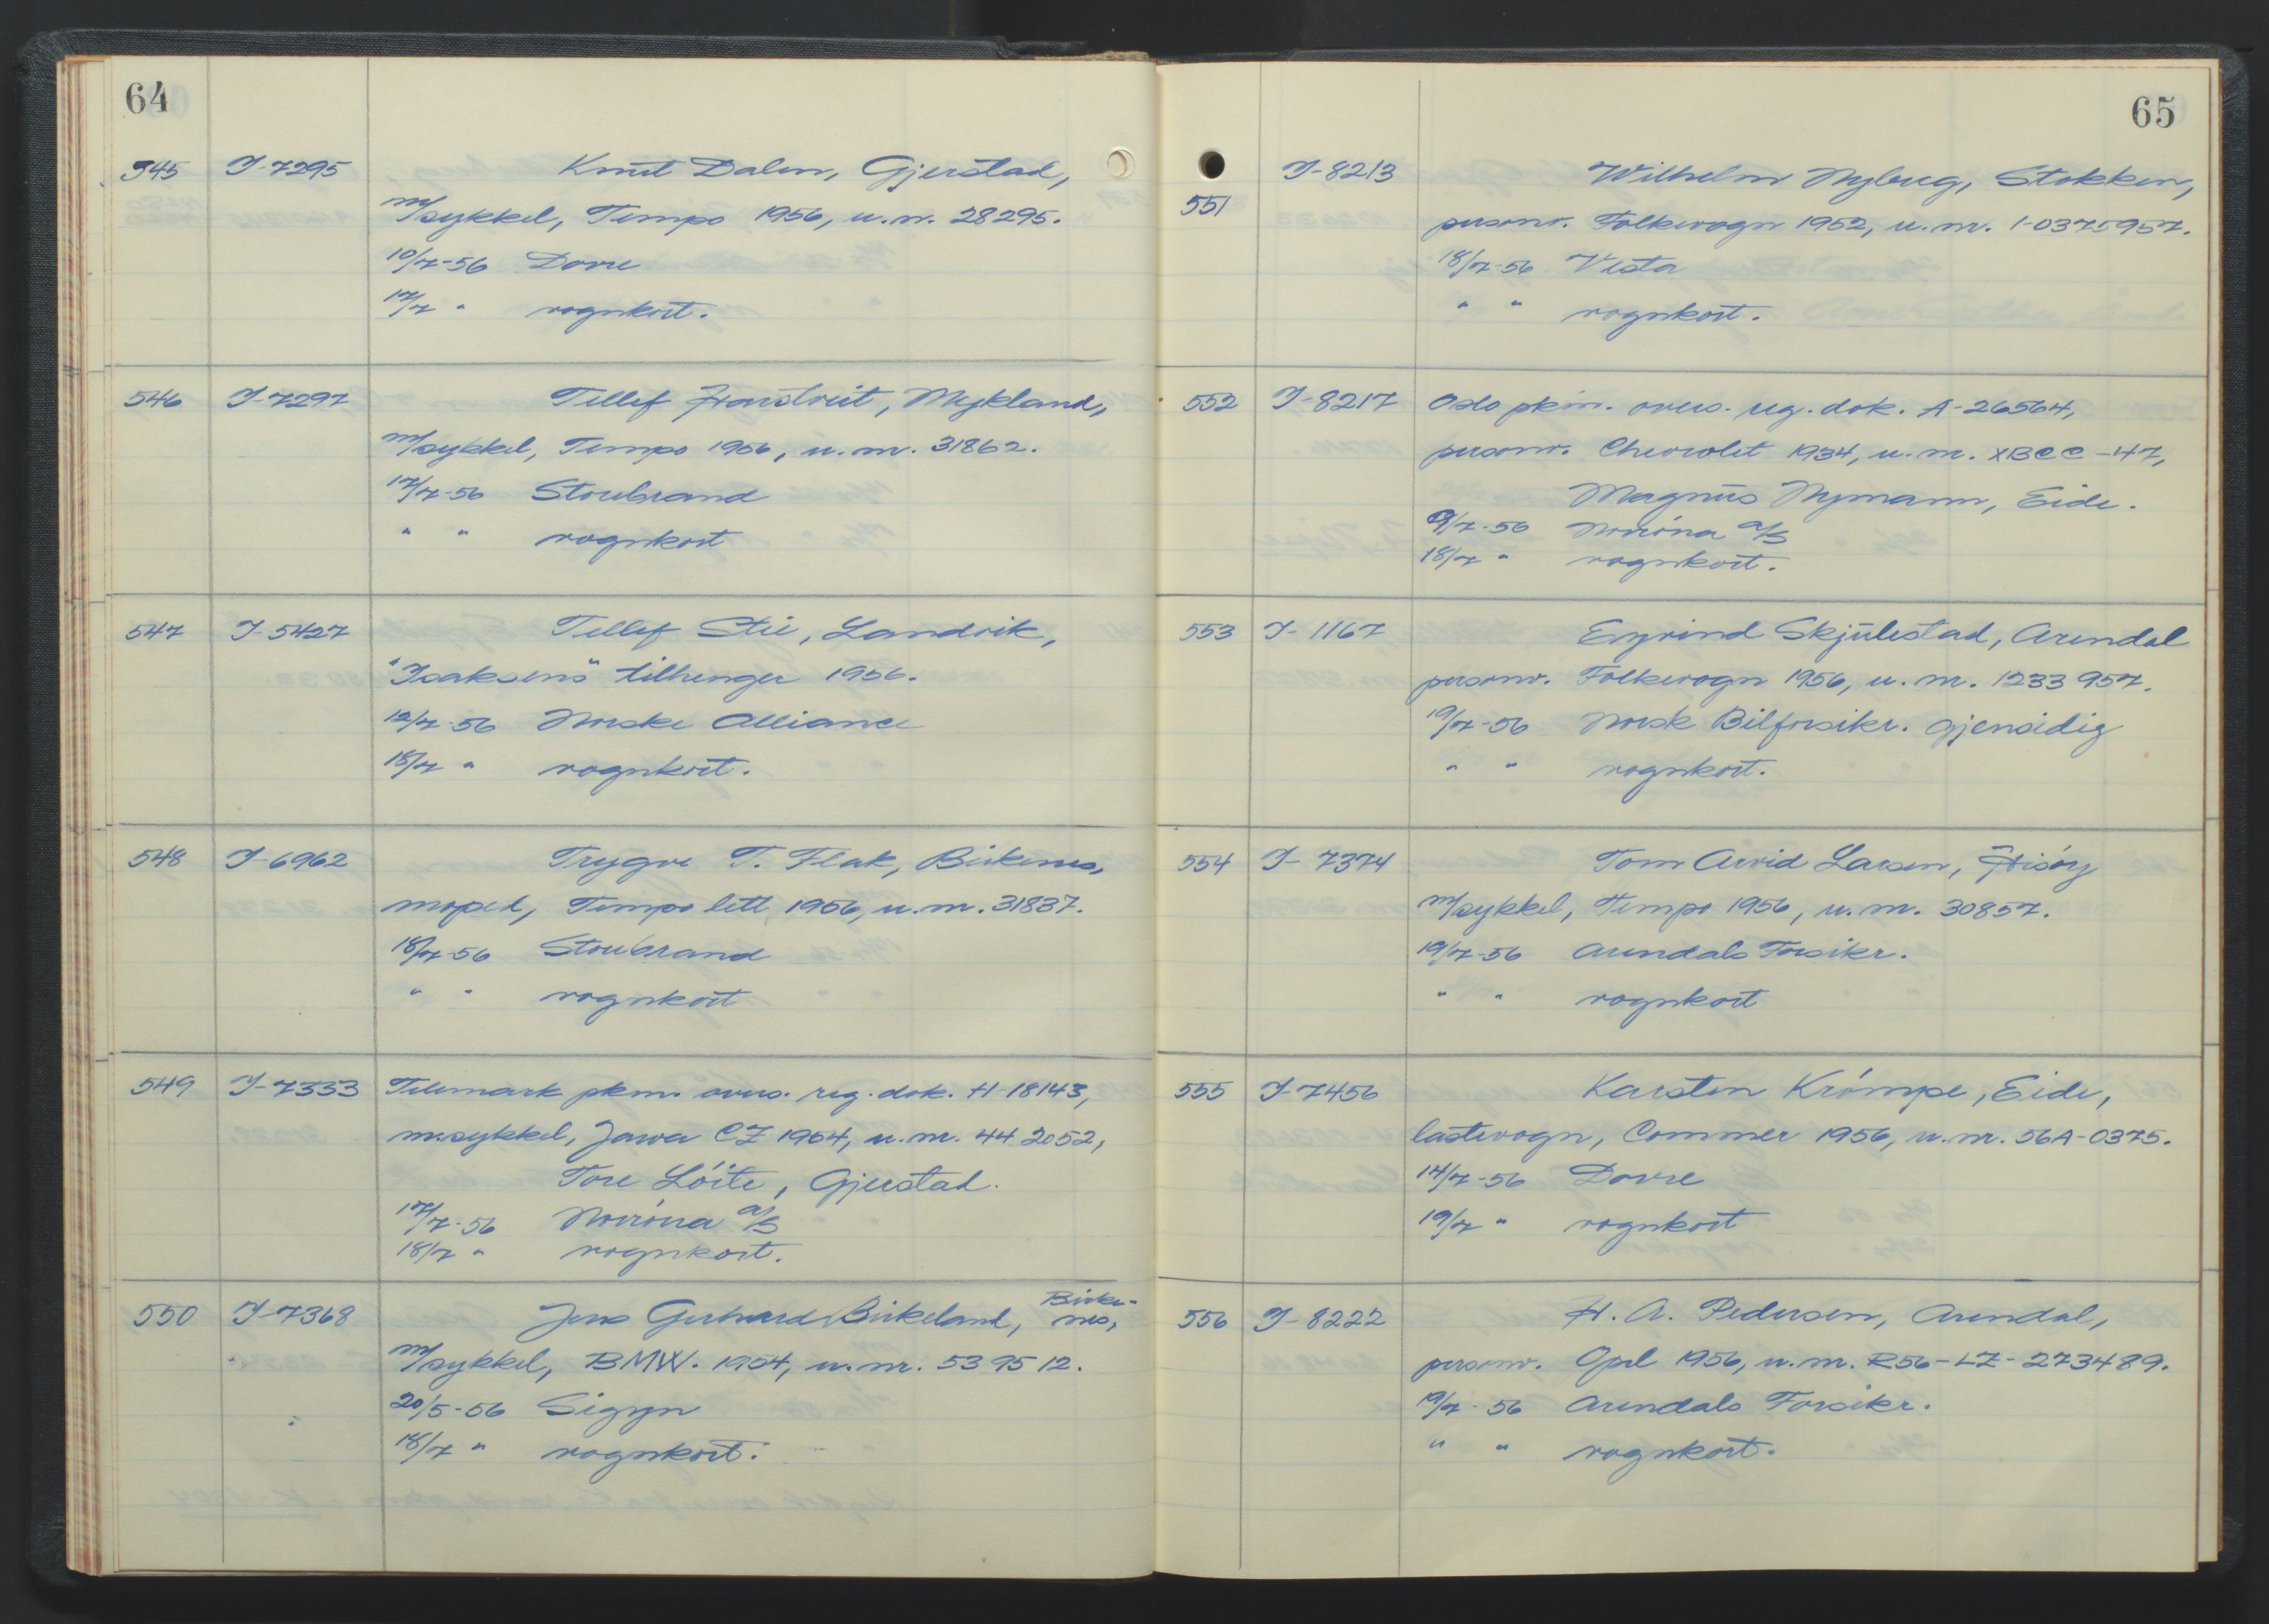 64
545 I-7295 Knut Dalen, Gjerstad,
m/sykkel, Tempo 1956, u.nr. 28295.
10/7-56 Dovre
17/7 " vognkort.
546 I-7297 Tellef Hanstveit, Mykland,
m/sykkel, Tempo 1956, u.nr. 31862.
17/7-56 Storebrand
" " vognkort
547 I-5427 Tellef Stie, Landvik,
"Isaksens" tilhenger 1956.
12/7-56 Norske Alliance
18/7 " vognkort.
548 I-6962 Trygve T. Flak, Birkenes,
moped, Tempo lett 1956, u.nr. 31837.
18/7-56 Storebrand
" " vognkort
549 I-7333 Telemark pkm. overs. reg. dok. H-18143,
m.sykkel, Jawa CZ 1954, u.nr. 44 2052,
Tore Löite, Gjerstad.
17/7-56 Norröna a/s
18/7 " vognkort.
550 I-7368 Jens Gerhard Birkeland, Birke-
nes,
m/sykkel, BMW. 1954, u.nr. 53 95 12.
20/5-56 Sigyn
18/7 " vognkort.
65
551 I-8213 Wilhelm Nyberg, Stokken,
personv. Folkevogn 1952, u.nr. 1-0375957.
18/7-56 Vesta
" " vognkort.
552 I-8217 Oslo pkm. overs. reg. dok. A-26564,
personv. Chevrolet 1934, u.nr. XBCC-47,
Magnus Nymann, Eide.
9/7-56 Norröna a/s
18/7 " vognkort.
553 I-1167 Eyvind Skjulestad, Arendal
personv. Folkevogn 1956, u.nr. 1233 957.
19/7-56 Norsk Bilforsikr. Gjensidig
" " vognkort.
554 I-7374 Tom Arvid Larsen, Hisöy
m/sykkel, Tempo 1956, u.nr. 30857.
19/7-56 Arendals Forsikr.
" " vognkort
555 I-7456 Karsten Krömpe, Eide,
lastevogn, Commer 1956, u.nr. 56A-0375.
14/7-56 Dovre
19/7 " vognkort
556 I-8222 H. A. Pedersen, Arendal,
personv. Opel 1956, u.nr. R56-LZ-273489.
19/7-56 Arendals Forsikr.
" " vognkort.